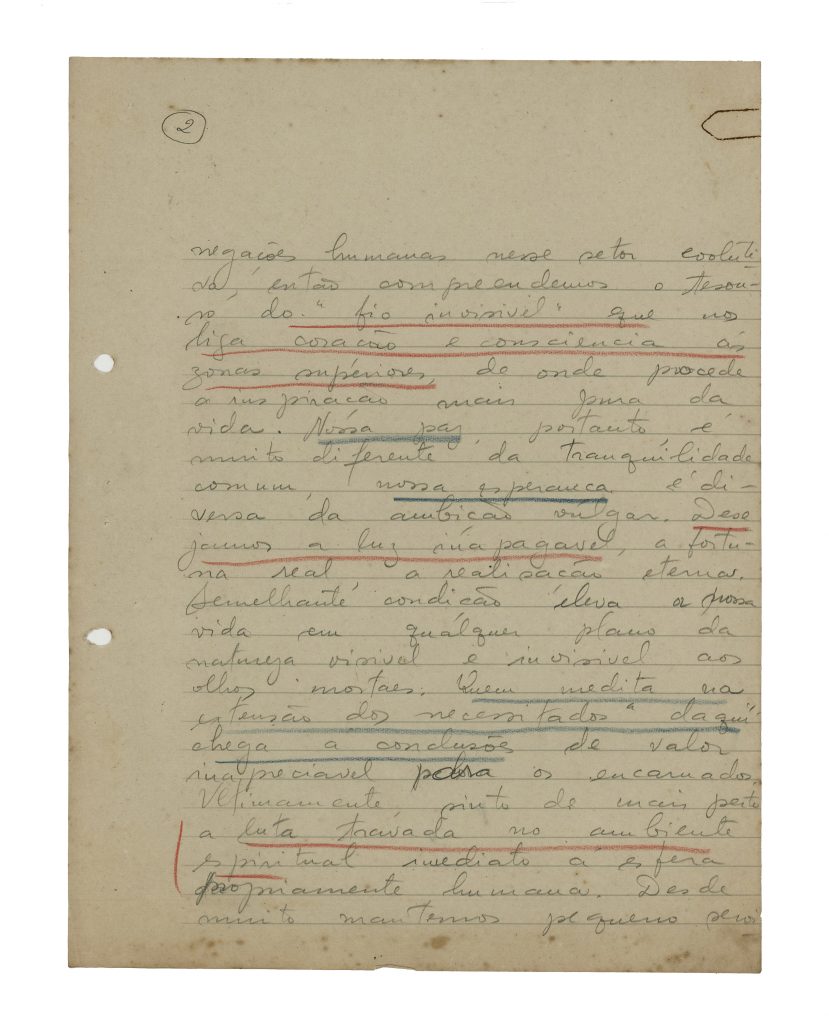 2
negações humanas nesse setor evoluti
vo, então comprehendemos o tesou-
ro do "fio invisivel" que nos
liga coração e consciência ás
zonas supériores, de onde procede
a inspiração mais pura da
vida. Nóssa paz, portanto é
muito diferente da tranquilidade
comum, nossa esperança é di-
versa da ambicão vúlgar. Dese
jamos a luz inapagavel, a fortu-
na real, a realisação eterna.
Semelhante condição eleva a nossa
vida em quálquer plano da
natureza visivel e invisivel aos
olhos mortaes. Quem medita na
extensão dos necessitados "daquí"
chega á conclusões de valor
inapreciavel para os encarnados.
Ultimamente, sinto de mais perto
a luta travada no ambiente
espiritual imediato á esfera
propriamente humana. Desde
muito mantemos pequeno servi